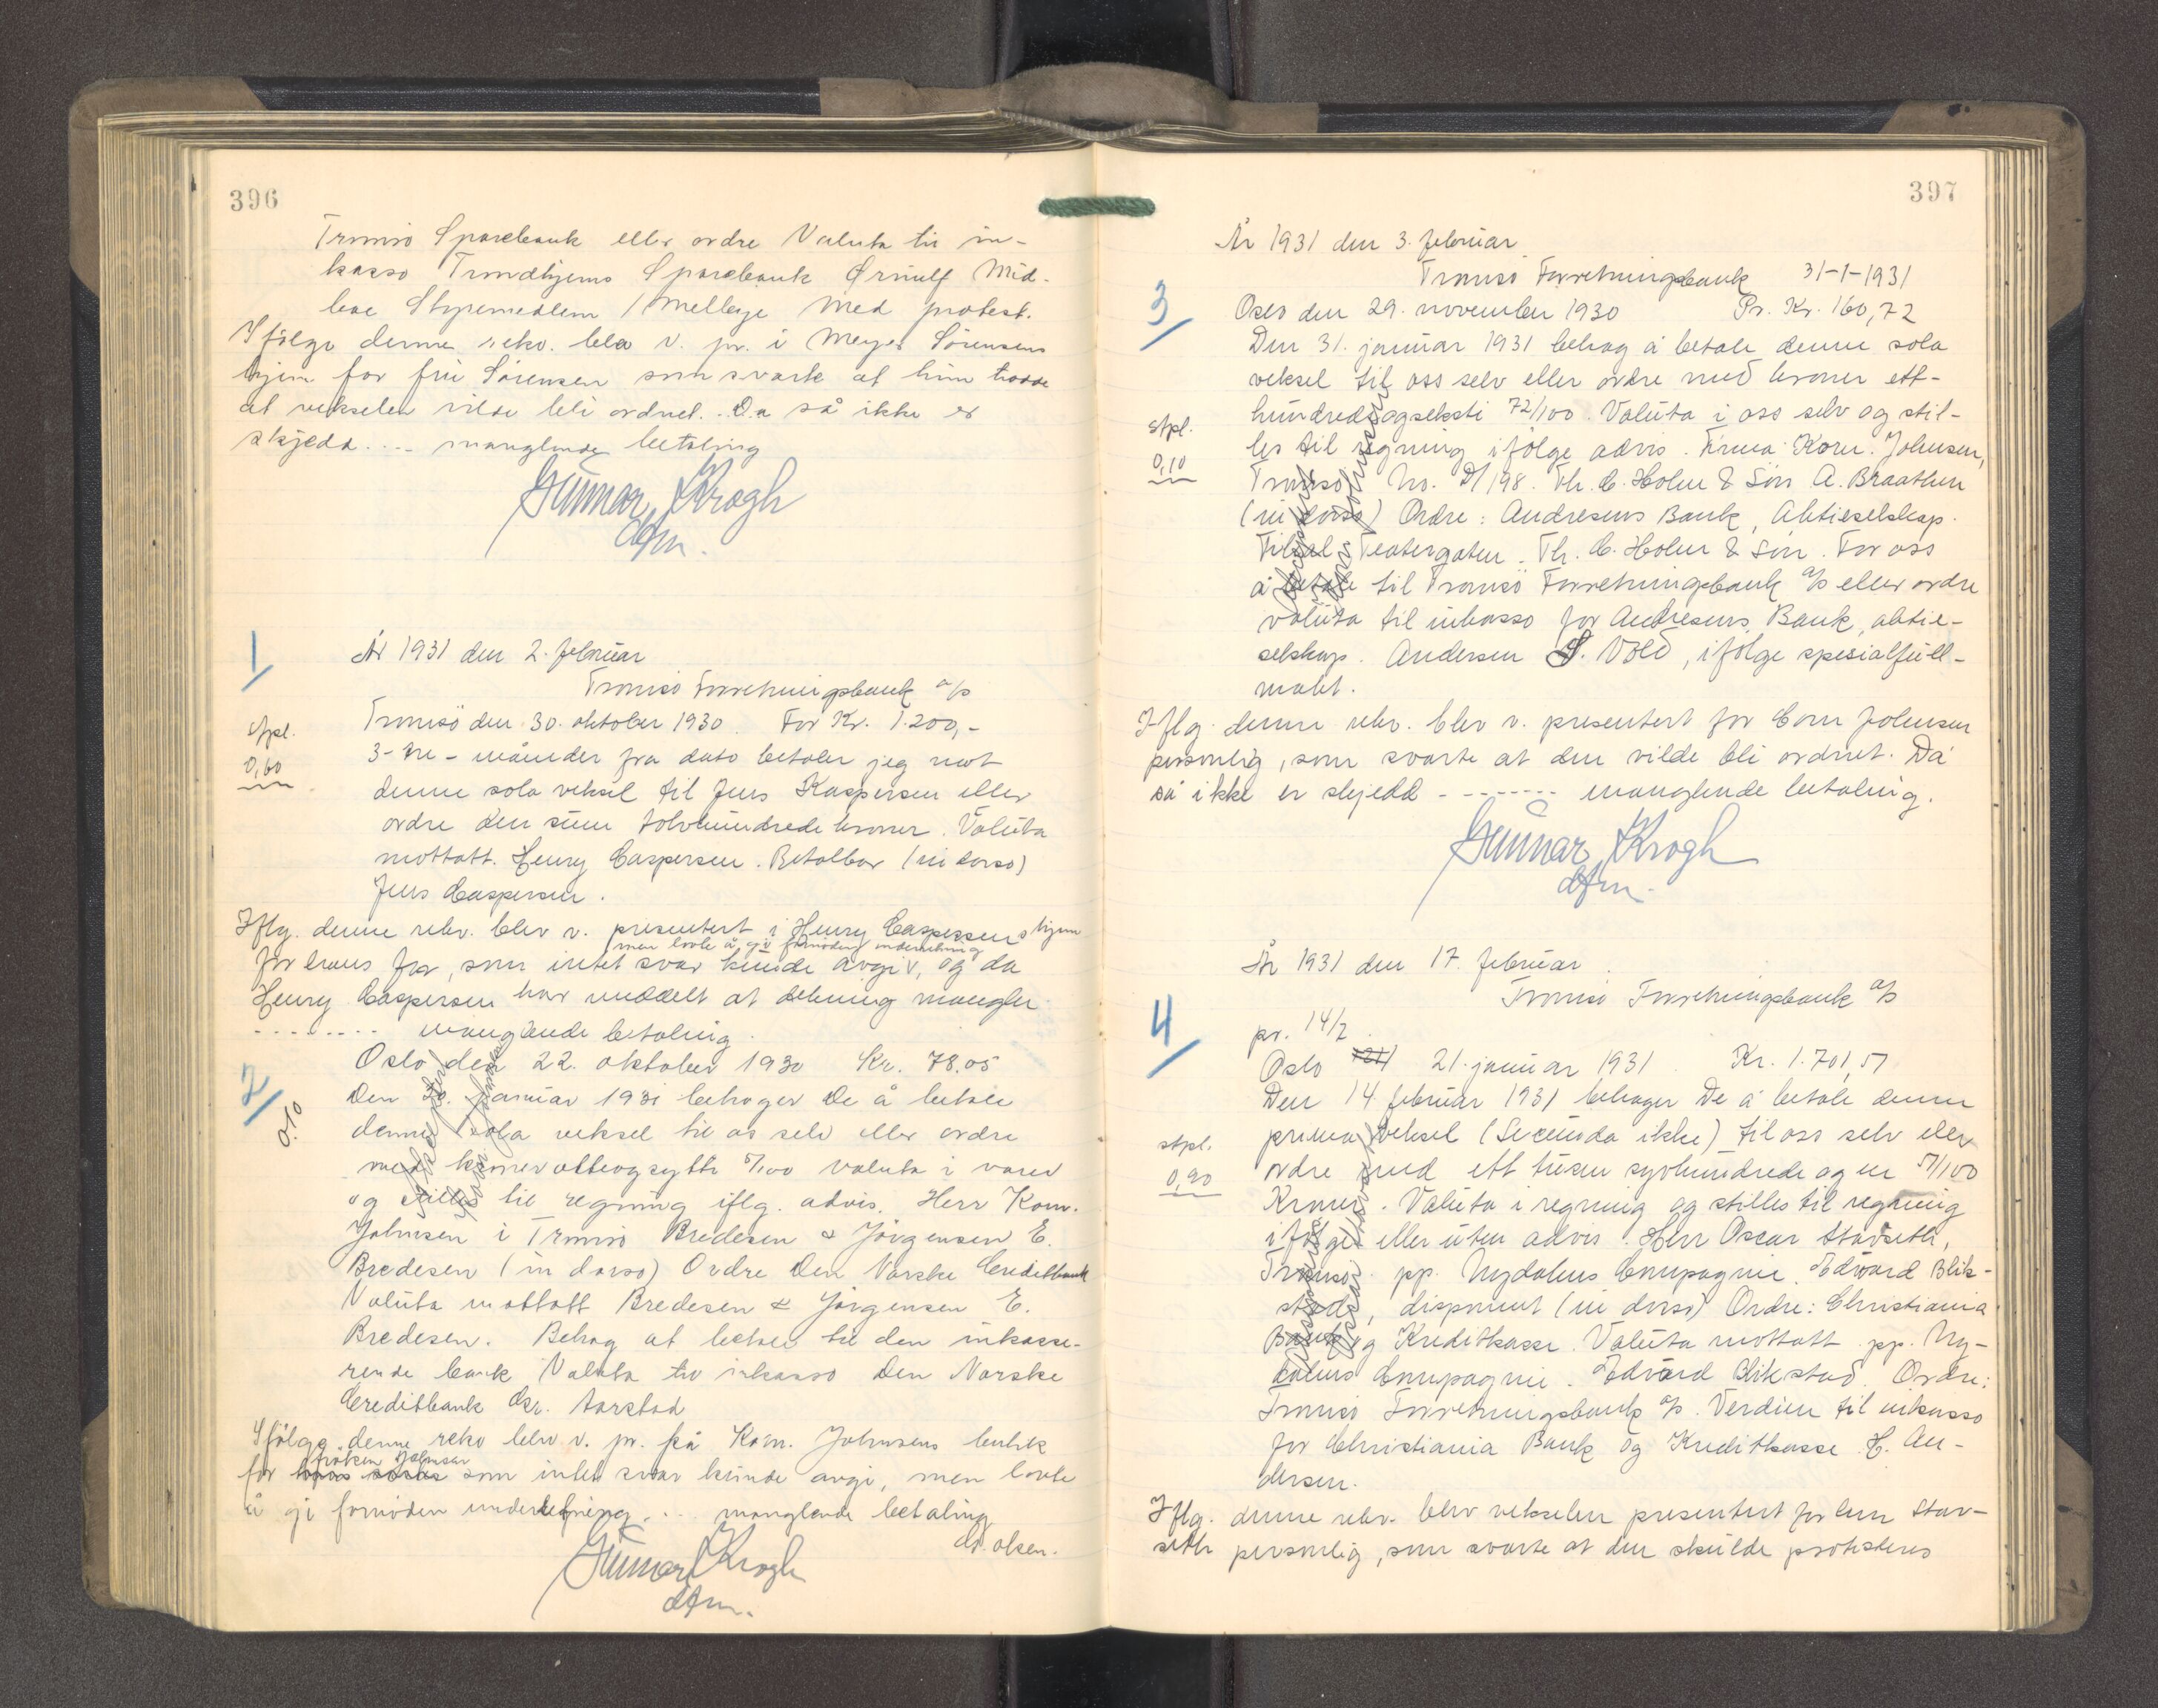 396
Tromsö Sparebank eller ordre Valuta til in-
kasso Trondhjems Sparebank Ørnulf Mid-
Styremedlem / Mellbye Med protest.
Ifölge denne rekv. blev v. pr. i Meyer Sörensens
hjem for fru Sörensen som svarte at hun trodde
at vekselen vilde bli ordnet. Da så ikke er
skjedd .... manglende betaling
Gunnar Krogh
dfm.
1
År 1931 den 2. februar
Tromsö Forretningsbank a/s
Tromsö den 30. oktober 1930. For Kr. 1.200,-
stpl.
0,60
3 - tre - måneder fra dato betaler jeg mot
denne sola veksel til Jens Kaspersen eller
ordre den sum tolvhundrede kroner. Valuta
mottatt. Henry Caspersen. Betalbar (in dorso)
Jens Caspersen.
Iflg. denne rekv. blev v. presentert i Henry Caspersens hjem
men lovte å gi fornöden underretning
for hans far, som intet svar kunde avgi v, og da
Henry Caspersen har meddelt at dekning mangler
- - - - - - - - manglende betaling.
2
0.10
Oslo den 22. oktober 1930 Kr. 78.05
Den 30. januar 1931 behager De å betale
denne sola veksel til os selv eller ordre
med kroner ottiogsytti 5/100 Valuta i varer
og stilles til regning iflg. advis. Herr Korn.
Johnsen i Tromsö Bredesen & Jörgensen E.
Bredesen (in dorso) Ordre Den Norske Creditbank
Valuta mottatt Bredesen & Jörgensen E.
Bredesen. Behag at betale til den inkasse-
rende bank Valuta til inkasso Den Norske
Creditbank Aarstad
Ifölge denne rekv blev v. pr. på Korn. Johnsens butik
fröken Johnsen
for som intet svar kunde avgi, men lovte
å gi fornöden underretning. .. manglende betaling
Olsen.
Gunnar Krogh
dfm.
397
År 1931 den 3. februar
Tromsö Forretningsbank 31-1-1931
3
Oslo den 29. november 1930 Pr. Kr. 160,72
Den 31. januar 1931 behag å betale denne sola
veksel til oss selv eller ordre med kroner ett-
hundredeogseksti 72/100. Valuta i oss selv og stil-
stpl.
0,10
les til regning ifölge advis. Firma Korn. Johnsen,
Tromsö. No. 198. Th. C. Holm & Sön A. Braathen
(in dorso) Ordre: Andresens Bank, Aktieselskap.
Filial Teatergaten. Th. C. Holm & Sön. For oss
å betale til Tromsö Forretningsbank a/s eller ordre
valuta til inkasso for Andresens Bank, aktie-
selskap. Andersen S. Vold, ifölge spesialfull-
makt.
Iflg. denne rekv. blev v. presentert for Corn Johnsen
personlig, som svarte at den vilde bli ordnet. Da
så ikke er skjedd - - - - - - - manglende betaling.
Gunnar Krogh
dfm.
År 1931 den 17. februar
Tromsö Forretningsbank a/s
4
pr. 14/2
Oslo 21. januar 1931 Kr. 1.701,57
Den 14 februar 1931 behager De å betale denne
stpl.
0,90
prima veksel (Secunda ikke) til oss selv eller
ordre med ett tusen syvhundrede og en 57/100
Kroner. Valuta i regning og stilles til regning
ifölge eller uten advis. Herr Oscar Stavseth,
Tromsö. pp. Nydalens Compagnie. Edvard Blik-
stad, disponent (in dorso) Ordre: Christiania
Bank og Kreditkasse. Valuta mottatt. pp. Ny-
dalens Compagnie. Edvard Blikstad. Ordre:
Tromsö Forretningsbank a/s. Verdien til inkasso
for Christiania Bank og Kreditkasse H. An-
dersen.
Iflg. denne rekv. blev vekselen presentert for herr Stav-
seth personlig, som svarte at den skulde protesteres